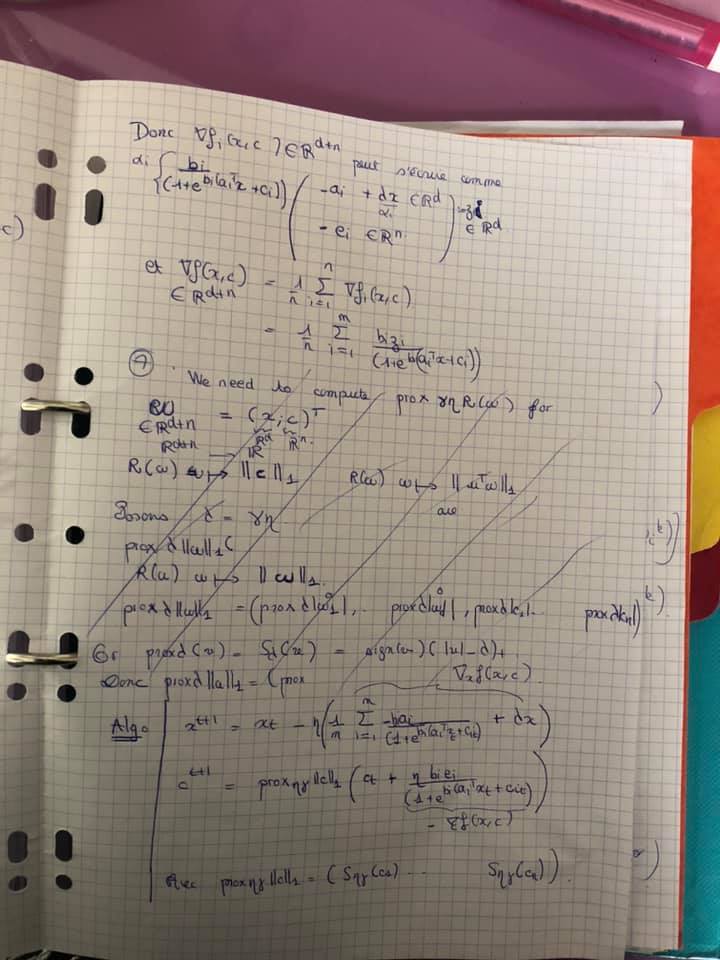 c)
Donc ∇fi(x,c) ∈ ℝ^{d+n} peut s'écrire comme
αi { bi / (1+e^{bi(aiᵀx+ci)}) ( -ai + dx/αi ∈ ℝ^d
- ei ∈ ℝ^n ) = zi ∈ ℝ^d
et ∇f(x,c) ∈ ℝ^{d+n} = 1/n Σ_{i=1}^{n} ∇fi(x,c)
= 1/n Σ_{i=1}^{n} bizi / (1+e^{b(aiᵀx+ci)})
④ . We need to compute prox γη R(ω) for )
ω ∈ ℝ^{d+n} = (x,c)ᵀ
ℝ^d ℝ^n.
ℝ^{d+n} → ℝ
R(ω) ω ↦ ||c||₁ R(ω) ω ↦ ||uᵀω||₁
Posons λ = γη
prox λ||ω||₁(
R(ω) ω ↦ ||ω||₁
prox λ||ω||₁ = (prox λ|ω₁|, .. prox λ|ωd|, prox λ|c₁|.. prox λ|cn|)
Or prox λ(u) = Sλ(u) = sign(u)(|u|-λ)₊
Donc prox λ||ω||₁ = (prox
∇ₓf(x,c)
Algo x^{t+1} = xt - η( 1/n Σ_{i=1}^{n} -bai / (1+e^{bi(aiᵀxt+cit)}) + dx )
c^{t+1} = prox ηγ||c||₁ ( ct + η biei / (1+e^{bi(aiᵀxt+cit)}) )
- ∇f(x,c)
Avec prox ηγ||c||₁ = (Sηγ(c₁) ... Sηγ(cn)).